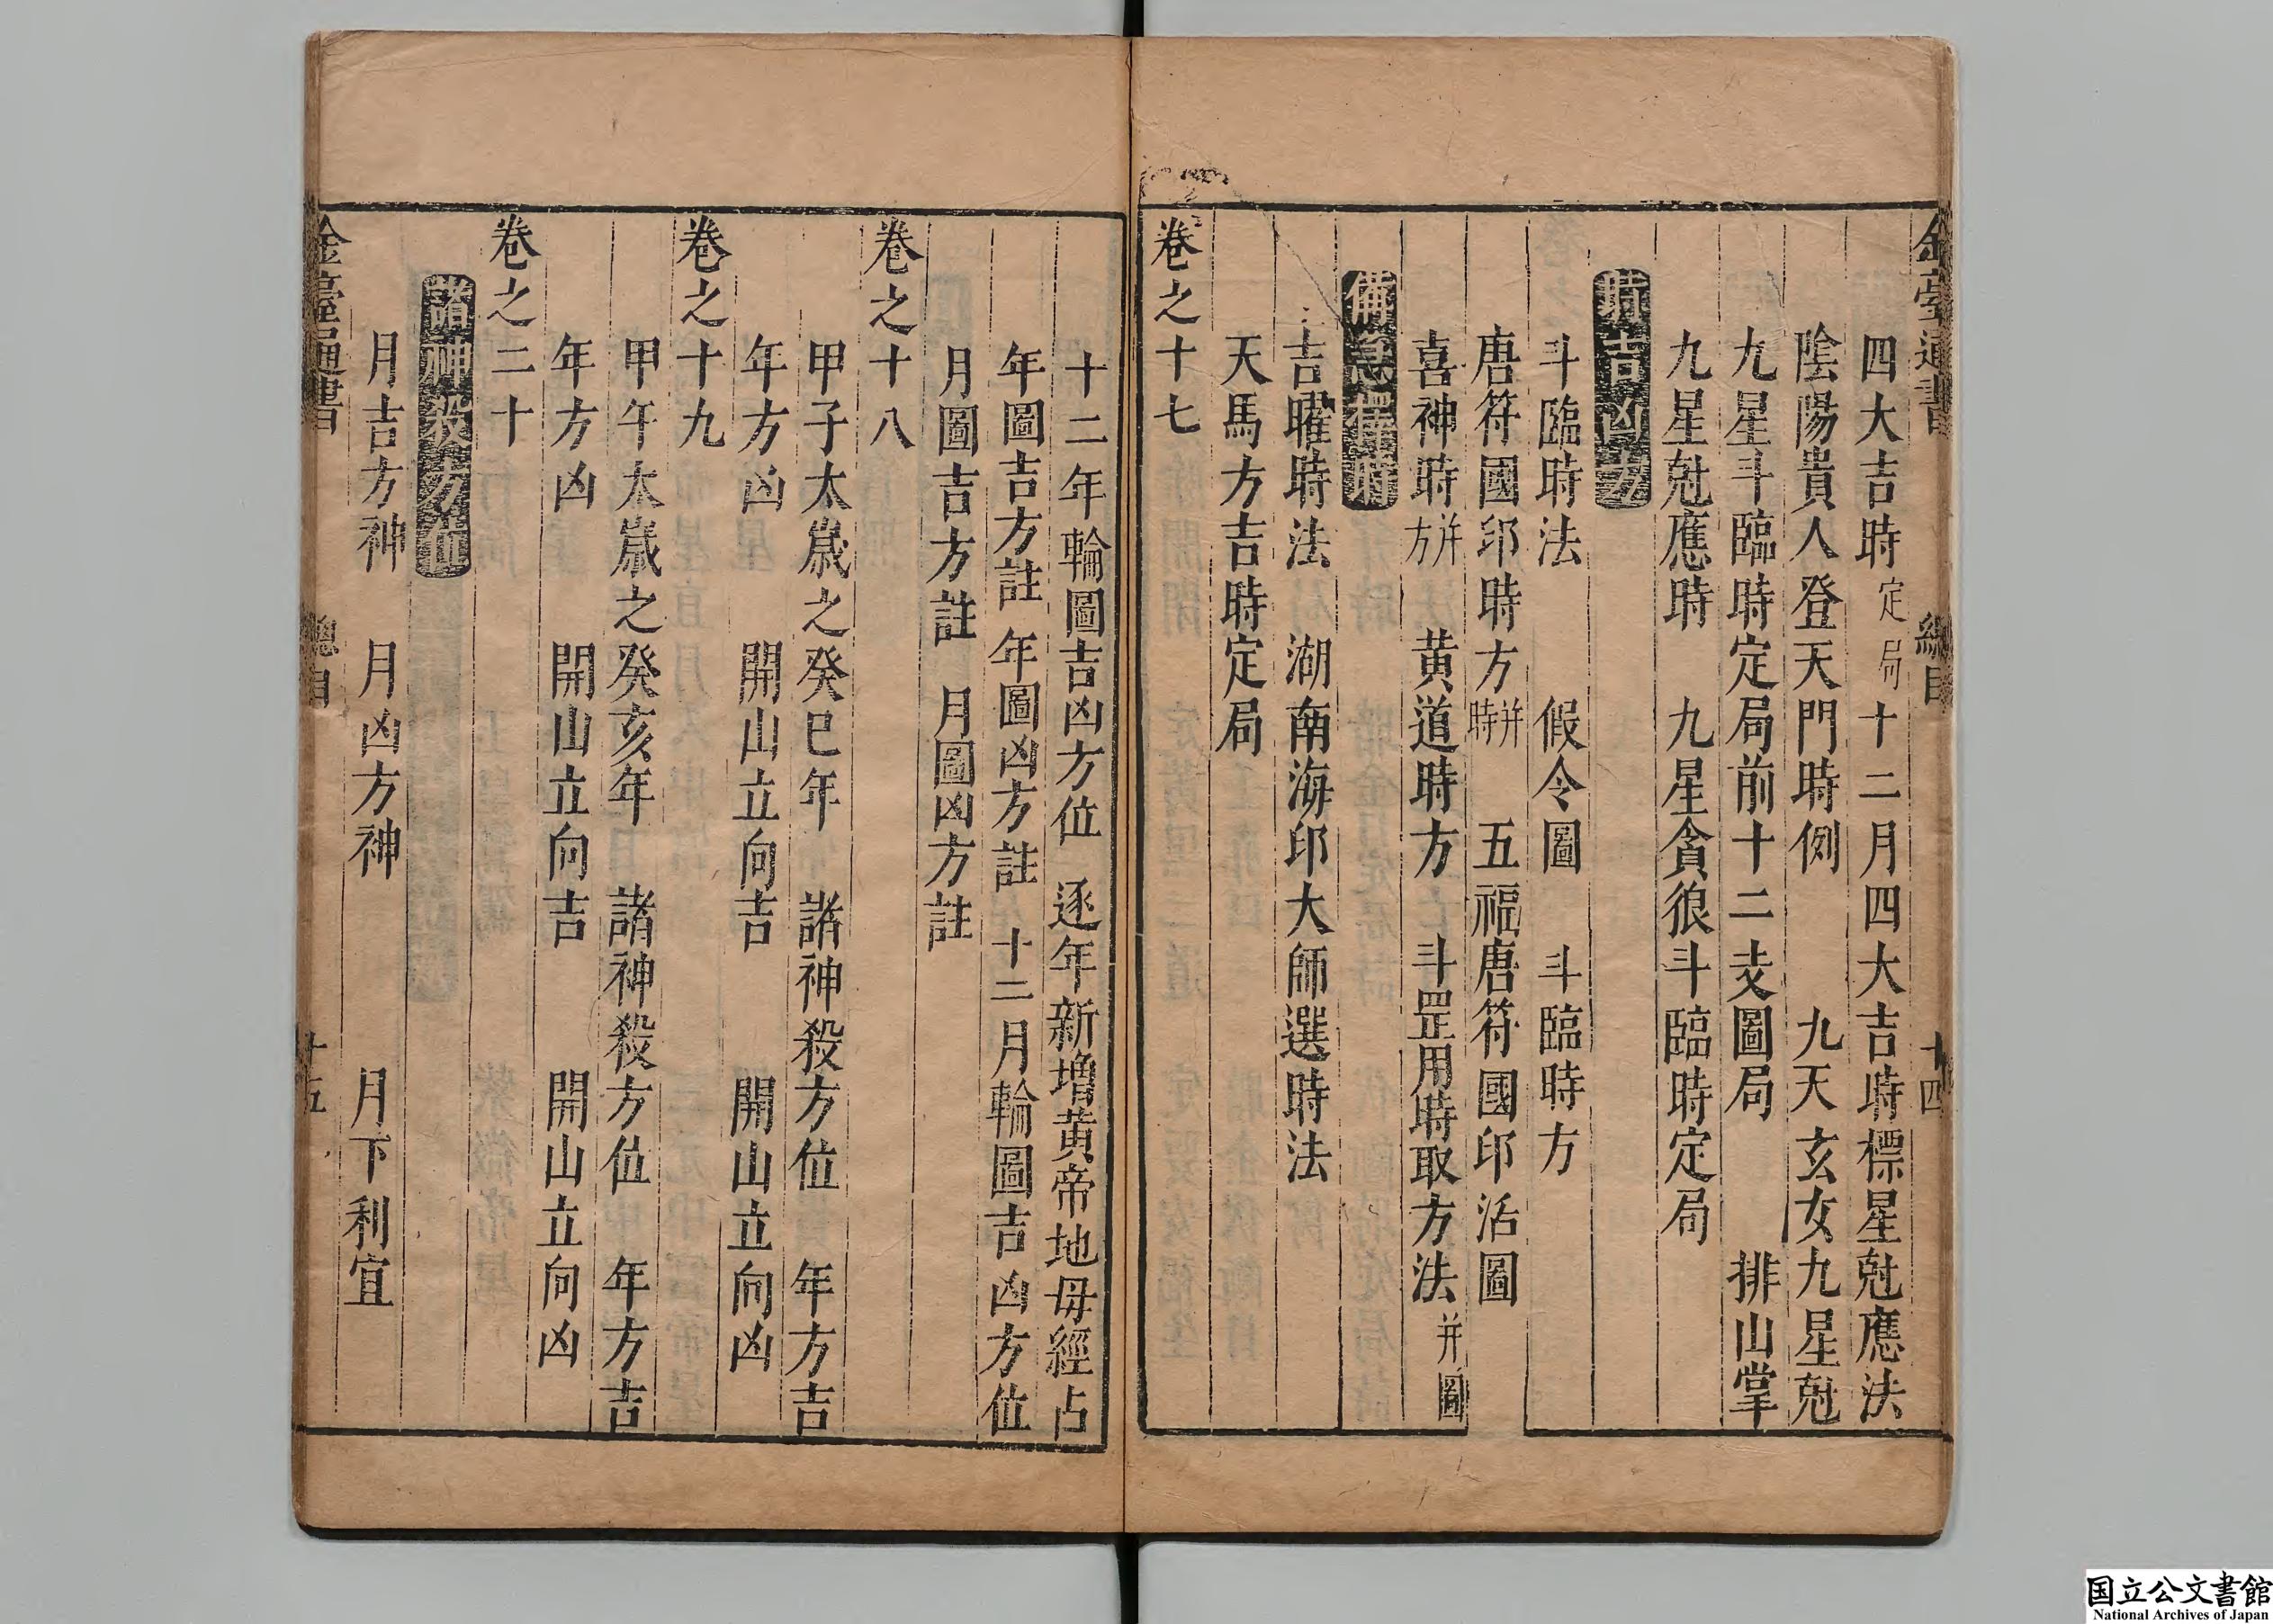 金臺通書 總目 十四
四大吉時定局十二月四大吉時標星尅應法
陰陽貴人登天門時例 九天玄女九星尅
九星斗臨時定局前十二支圖局 排山掌
九星尅應時 九星貪狼斗臨時定局
時吉凶方
斗臨時法 假令圖 斗臨時方
唐符國印時方并時 五福唐符國印活圖
喜神時并方 黄道時方 斗罡用時取方法并圖
備急擇時
吉曜時法 湖南海印大師選時法
天馬方吉時定局
卷之十七
十二年輪圖吉凶方位 逐年新增黄帝地母經占
年圖吉方註 年圖凶方註 十二月輪圖吉凶方位
月圖吉方註 月圖凶方註
卷之十八
甲子太歲之癸巳年 諸神殺方位 年方吉
年方凶 開山立向吉 開山立向凶
卷之十九
甲午太歲之癸亥年 諸神殺方位 年方吉
年方凶 開山立向吉 開山立向凶
卷之二十
諸神殺方位
月吉方神 月凶方神 月下利宜
金臺通書 總目 十五
国立公文書館
National Archives of Japan